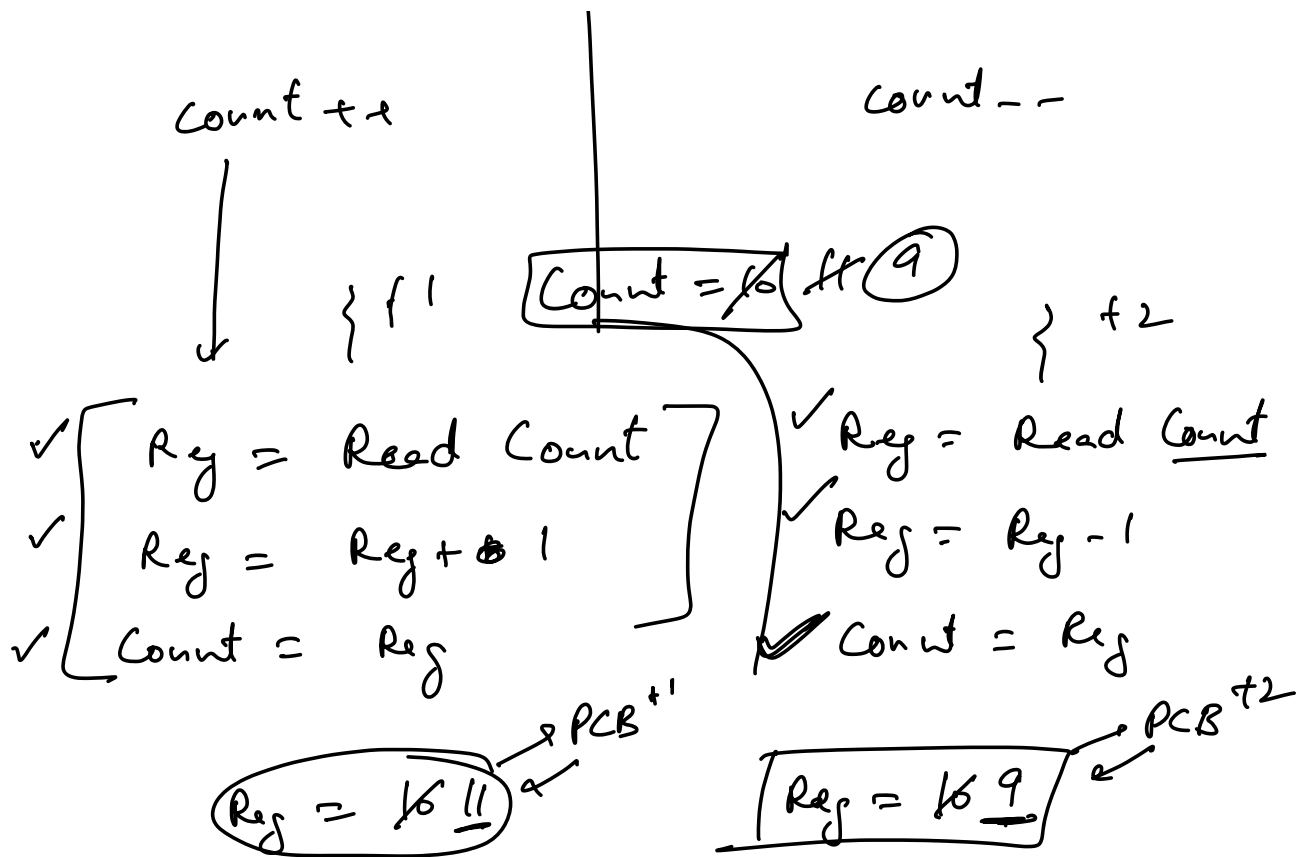 Count ++
count--
Count = 10 11 9
} t1
} t2
Reg = Read Count
Reg = Reg + 1
Count = Reg
Reg = Read Count
Reg = Reg - 1
Count = Reg
PCB t1
Reg = 10 11
PCB t2
Reg = 10 9